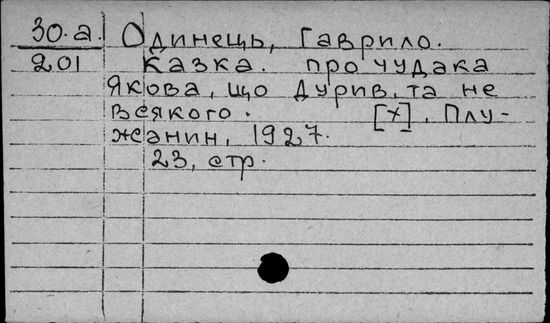 30.а. Одинець, Гаврило.
201 Казка. про чудака
Якова, що дурив, та не
всякого. [х]. Плу-
жанин, 1927.
23, стр.